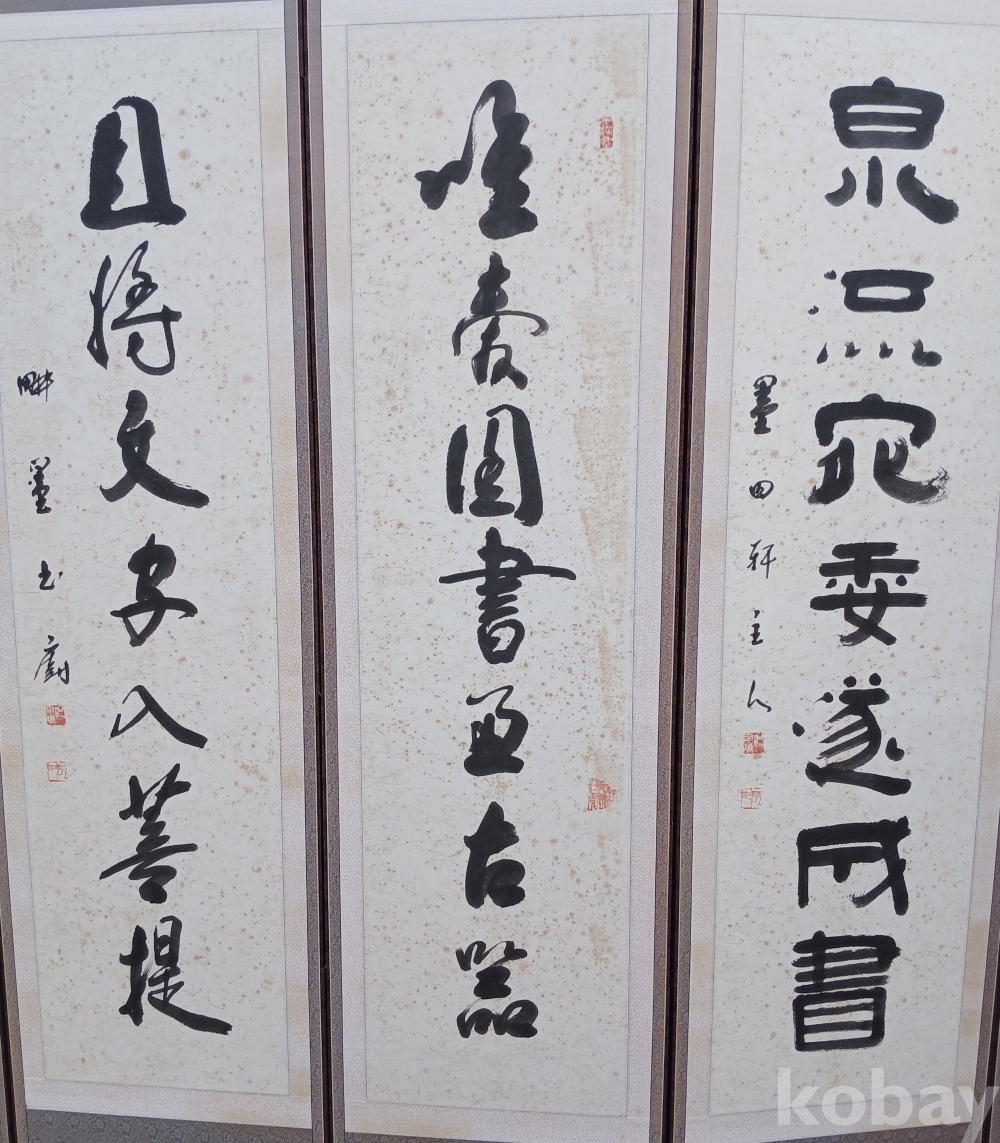 泉宛委遂成書
墨田軒主人
唯愛圖書兼古器
且將文字入菩提
畊墨
kobay